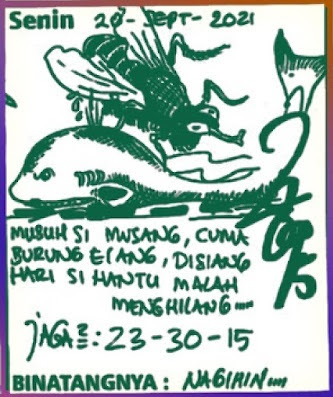 Senin 20-SEPT-2021
MUSUH SI MUSANG, CUMA
BURUNG ELANG, DISIANG
HARI SI HANTU MALAH
MENGHILANG
JAGA2: 23-30-15
BINATANGNYA: NAGIHIN